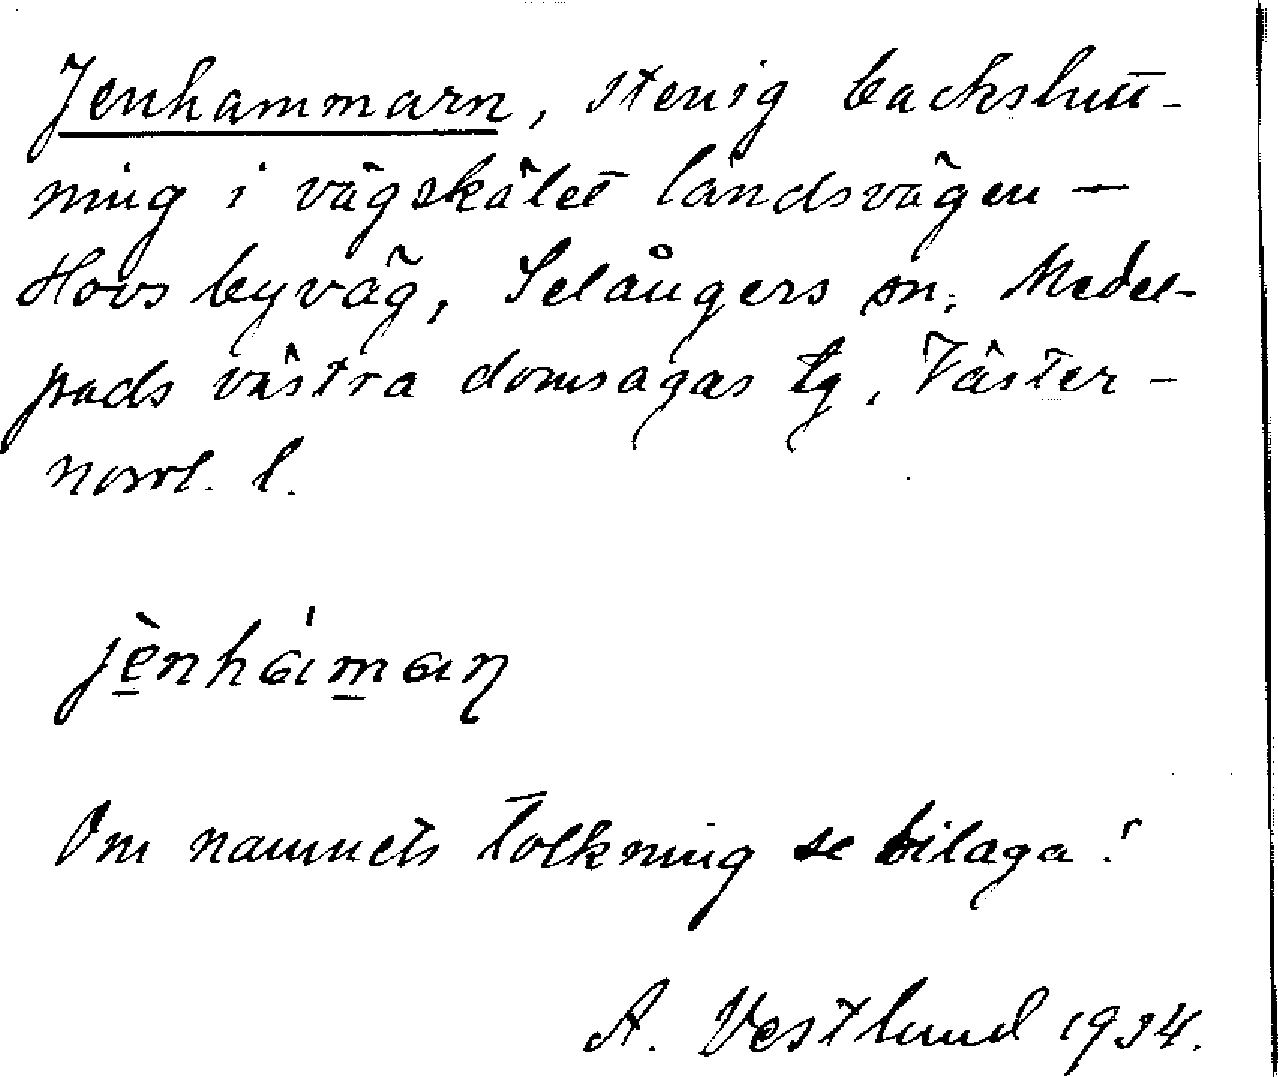 Jenhammarn, stenig backslutt-
ning i vägskälet landsvägen —
Hovs byväg, Selångers sn, Medel-
pads västra domsagas tg, Väster-
norrl. l.
jènhámaṇ
Om namnets tolkning se bilaga!
A. Vestlund 1934.